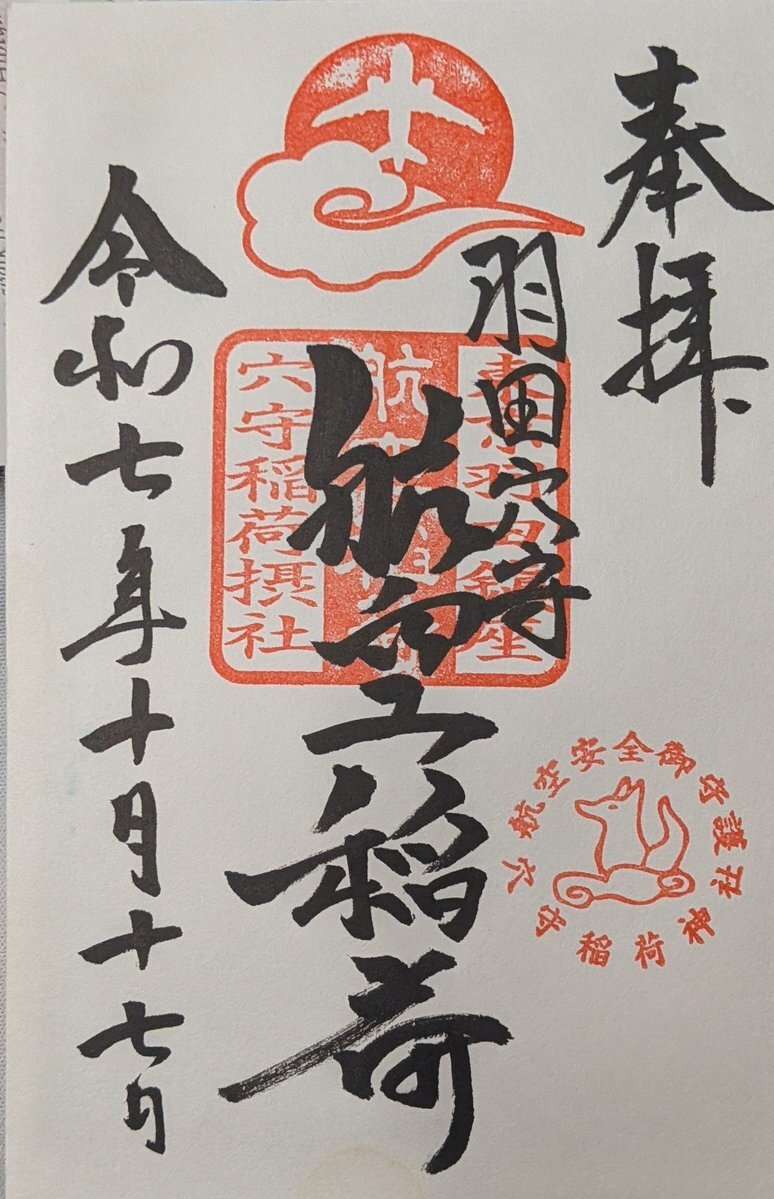 奉拝
羽田穴守
航空稲荷
令和七年十月十七日
東京羽田鎮座
穴守稲荷摂社
航空安全御守護
穴守稲荷神社